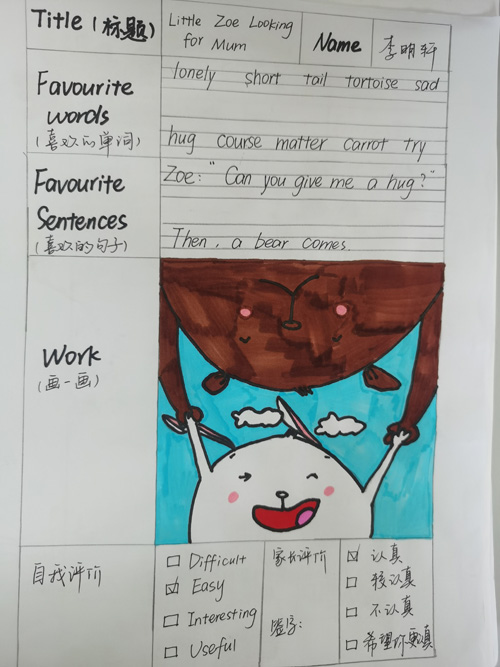 Title (标题)
Little Zoe Looking
for Mum
Name
李明轩
Favourite
words
(喜欢的单词)
lonely short tail tortoise sad
hug course matter carrot try
Favourite
Sentences
(喜欢的句子)
Zoe: "Can you give me a hug?"
Then, a bear comes.
Work
(画一画)
自我评价
Difficult
Easy
Interesting
Useful
家长评价
签字:
认真
较认真
不认真
希望你更认真